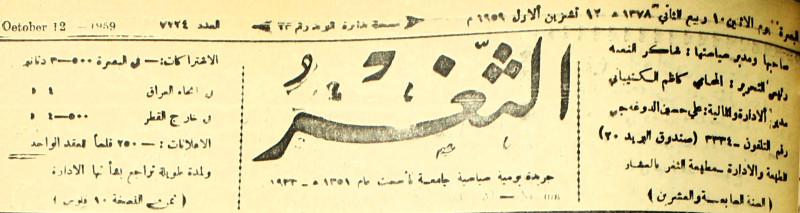 البصرة يوم الاثنين ١٠ ربيع الثاني ١٣٧٨ هـ ١٢ تشرين الاول ١٩٥٩ م
العدد ٧٢٢٤
October 12 — 1959
صاحبها ومدير سياستها : شاكر النعمة
رئيس التحرير : المحامي كاظم
مدير الادارة والمالية : علي حسين
رقم التلفون – ٣٣٣٤ (صندوق البريد ٢٠)
الطبعة والادارة – مطبعة الثغر بالعشار
( السنة السابعة والعشرين )
الثغر
جريدة يومية سياسية جامعة تأسست عام ١٣٥١ هـ – ١٩٣٣
الاشتراكات : — في البصرة ٥٠٠—٣ دنانير
في انحاء العراق ٤ د
في خارج القطر ٥٠٠—٤ د
الاعلانات : — ٢٥٠ فلساً للعقد الواحد
ولمدة طويلة تراجع بشأنها الادارة
( ثمن النسخة ١٠ فلوس )